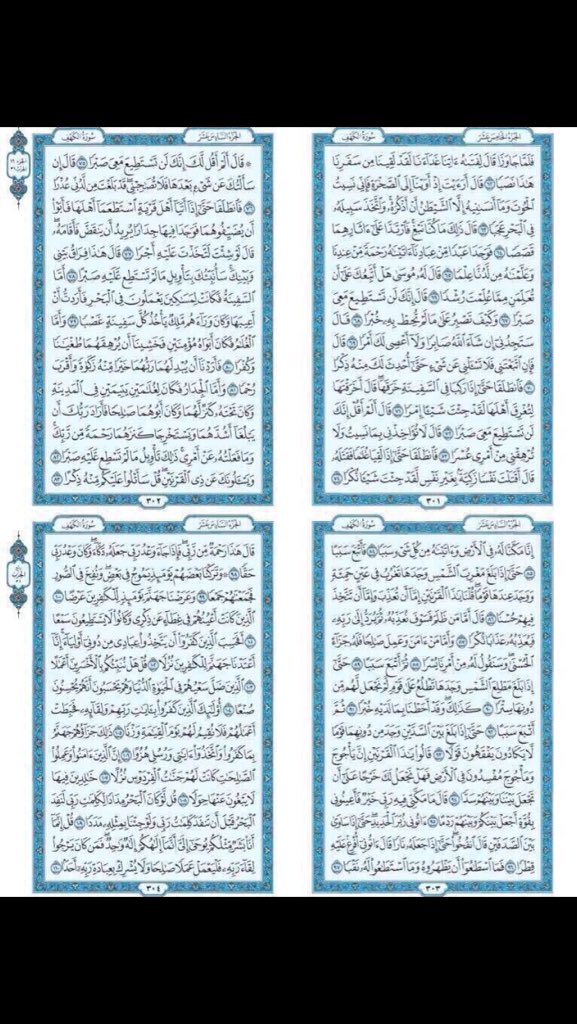 الجزء الخامس عشر
سورة الكهف
فَلَمَّا جَاوَزَا قَالَ لِفَتَىٰهُ ءَاتِنَا غَدَآءَنَا لَقَدْ لَقِينَا مِن سَفَرِنَا
هَٰذَا نَصَبًا ٦٢ قَالَ أَرَءَيْتَ إِذْ أَوَيْنَآ إِلَى ٱلصَّخْرَةِ فَإِنِّى نَسِيتُ
ٱلْحُوتَ وَمَآ أَنسَىٰنِيهُ إِلَّا ٱلشَّيْطَٰنُ أَنْ أَذْكُرَهُۥ وَٱتَّخَذَ سَبِيلَهُۥ
فِى ٱلْبَحْرِ عَجَبًا ٦٣ قَالَ ذَٰلِكَ مَا كُنَّا نَبْغِ فَٱرْتَدَّا عَلَىٰٓ ءَاثَارِهِمَا
قَصَصًا ٦٤ فَوَجَدَا عَبْدًا مِّنْ عِبَادِنَآ ءَاتَيْنَٰهُ رَحْمَةً مِّنْ عِندِنَا
وَعَلَّمْنَٰهُ مِن لَّدُنَّا عِلْمًا ٦٥ قَالَ لَهُۥ مُوسَىٰ هَلْ أَتَّبِعُكَ عَلَىٰٓ أَن
تُعَلِّمَنِ مِمَّا عُلِّمْتَ رُشْدًا ٦٦ قَالَ إِنَّكَ لَن تَسْتَطِيعَ مَعِىَ
صَبْرًا ٦٧ وَكَيْفَ تَصْبِرُ عَلَىٰ مَا لَمْ تُحِطْ بِهِۦ خُبْرًا ٦٨ قَالَ
سَتَجِدُنِىٓ إِن شَآءَ ٱللَّهُ صَابِرًا وَلَآ أَعْصِى لَكَ أَمْرًا ٦٩ قَالَ
فَإِنِ ٱتَّبَعْتَنِى فَلَا تَسْـَٔلْنِى عَن شَىْءٍ حَتَّىٰٓ أُحْدِثَ لَكَ مِنْهُ ذِكْرًا
٧٠ فَٱنطَلَقَا حَتَّىٰٓ إِذَا رَكِبَا فِى ٱلسَّفِينَةِ خَرَقَهَا قَالَ أَخَرَقْتَهَا
لِتُغْرِقَ أَهْلَهَا لَقَدْ جِئْتَ شَيْـًٔا إِمْرًا ٧١ قَالَ أَلَمْ أَقُلْ إِنَّكَ
لَن تَسْتَطِيعَ مَعِىَ صَبْرًا ٧٢ قَالَ لَا تُؤَاخِذْنِى بِمَا نَسِيتُ وَلَا
تُرْهِقْنِى مِنْ أَمْرِى عُسْرًا ٧٣ فَٱنطَلَقَا حَتَّىٰٓ إِذَا لَقِيَا غُلَٰمًا فَقَتَلَهُۥ
قَالَ أَقَتَلْتَ نَفْسًا زَكِيَّةًۢ بِغَيْرِ نَفْسٍ لَّقَدْ جِئْتَ شَيْـًٔا نُّكْرًا ٧٤
٣٠١
الجزء السادس عشر
سورة الكهف
۞ قَالَ أَلَمْ أَقُل لَّكَ إِنَّكَ لَن تَسْتَطِيعَ مَعِىَ صَبْرًا ٧٥ قَالَ إِن
سَأَلْتُكَ عَن شَىْءٍۭ بَعْدَهَا فَلَا تُصَٰحِبْنِى قَدْ بَلَغْتَ مِن لَّدُنِّى عُذْرًا
٧٦ فَٱنطَلَقَا حَتَّىٰٓ إِذَآ أَتَيَآ أَهْلَ قَرْيَةٍ ٱسْتَطْعَمَآ أَهْلَهَا فَأَبَوْا۟
أَن يُضَيِّفُوهُمَا فَوَجَدَا فِيهَا جِدَارًا يُرِيدُ أَن يَنقَضَّ فَأَقَامَهُۥ
قَالَ لَوْ شِئْتَ لَتَّخَذْتَ عَلَيْهِ أَجْرًا ٧٧ قَالَ هَٰذَا فِرَاقُ بَيْنِى
وَبَيْنِكَ سَأُنَبِّئُكَ بِتَأْوِيلِ مَا لَمْ تَسْتَطِع عَّلَيْهِ صَبْرًا ٧٨ أَمَّا
ٱلسَّفِينَةُ فَكَانَتْ لِمَسَٰكِينَ يَعْمَلُونَ فِى ٱلْبَحْرِ فَأَرَدتُّ أَنْ
أَعِيبَهَا وَكَانَ وَرَآءَهُم مَّلِكٌ يَأْخُذُ كُلَّ سَفِينَةٍ غَصْبًا ٧٩ وَأَمَّا
ٱلْغُلَٰمُ فَكَانَ أَبَوَاهُ مُؤْمِنَيْنِ فَخَشِينَآ أَن يُرْهِقَهُمَا طُغْيَٰنًا
وَكُفْرًا ٨٠ فَأَرَدْنَآ أَن يُبْدِلَهُمَا رَبُّهُمَا خَيْرًا مِّنْهُ زَكَوٰةً وَأَقْرَبَ
رُحْمًا ٨١ وَأَمَّا ٱلْجِدَارُ فَكَانَ لِغُلَٰمَيْنِ يَتِيمَيْنِ فِى ٱلْمَدِينَةِ
وَكَانَ تَحْتَهُۥ كَنزٌ لَّهُمَا وَكَانَ أَبُوهُمَا صَٰلِحًا فَأَرَادَ رَبُّكَ أَن
يَبْلُغَآ أَشُدَّهُمَا وَيَسْتَخْرِجَا كَنزَهُمَا رَحْمَةً مِّن رَّبِّكَ
وَمَا فَعَلْتُهُۥ عَنْ أَمْرِى ذَٰلِكَ تَأْوِيلُ مَا لَمْ تَسْطِع عَّلَيْهِ صَبْرًا ٨٢
وَيَسْـَٔلُونَكَ عَن ذِى ٱلْقَرْنَيْنِ قُلْ سَأَتْلُوا۟ عَلَيْكُم مِّنْهُ ذِكْرًا ٨٣
٣٠٢
الجزء السادس عشر
سورة الكهف
إِنَّا مَكَّنَّا لَهُۥ فِى ٱلْأَرْضِ وَءَاتَيْنَٰهُ مِن كُلِّ شَىْءٍ سَبَبًا ٨٤ فَأَتْبَعَ سَبَبًا
٨٥ حَتَّىٰٓ إِذَا بَلَغَ مَغْرِبَ ٱلشَّمْسِ وَجَدَهَا تَغْرُبُ فِى عَيْنٍ حَمِئَةٍ
وَوَجَدَ عِندَهَا قَوْمًا قُلْنَا يَٰذَا ٱلْقَرْنَيْنِ إِمَّآ أَن تُعَذِّبَ وَإِمَّآ أَن تَتَّخِذَ
فِيهِمْ حُسْنًا ٨٦ قَالَ أَمَّا مَن ظَلَمَ فَسَوْفَ نُعَذِّبُهُۥ ثُمَّ يُرَدُّ إِلَىٰ رَبِّهِۦ
فَيُعَذِّبُهُۥ عَذَابًا نُّكْرًا ٨٧ وَأَمَّا مَنْ ءَامَنَ وَعَمِلَ صَٰلِحًا فَلَهُۥ جَزَآءً
ٱلْحُسْنَىٰ وَسَنَقُولُ لَهُۥ مِنْ أَمْرِنَا يُسْرًا ٨٨ ثُمَّ أَتْبَعَ سَبَبًا ٨٩ حَتَّىٰٓ
إِذَا بَلَغَ مَطْلِعَ ٱلشَّمْسِ وَجَدَهَا تَطْلُعُ عَلَىٰ قَوْمٍ لَّمْ نَجْعَل لَّهُم مِّن
دُونِهَا سِتْرًا ٩٠ كَذَٰلِكَ وَقَدْ أَحَطْنَا بِمَا لَدَيْهِ خُبْرًا ٩١ ثُمَّ
أَتْبَعَ سَبَبًا ٩٢ حَتَّىٰٓ إِذَا بَلَغَ بَيْنَ ٱلسَّدَّيْنِ وَجَدَ مِن دُونِهِمَا قَوْمًا
لَّا يَكَادُونَ يَفْقَهُونَ قَوْلًا ٩٣ قَالُوا۟ يَٰذَا ٱلْقَرْنَيْنِ إِنَّ يَأْجُوجَ
وَمَأْجُوجَ مُفْسِدُونَ فِى ٱلْأَرْضِ فَهَلْ نَجْعَلُ لَكَ خَرْجًا عَلَىٰٓ أَن
تَجْعَلَ بَيْنَنَا وَبَيْنَهُمْ سَدًّا ٩٤ قَالَ مَا مَكَّنِّى فِيهِ رَبِّى خَيْرٌ فَأَعِينُونِى
بِقُوَّةٍ أَجْعَلْ بَيْنَكُمْ وَبَيْنَهُمْ رَدْمًا ٩٥ ءَاتُونِى زُبَرَ ٱلْحَدِيدِ حَتَّىٰٓ إِذَا سَاوَىٰ
بَيْنَ ٱلصَّدَفَيْنِ قَالَ ٱنفُخُوا۟ حَتَّىٰٓ إِذَا جَعَلَهُۥ نَارًا قَالَ ءَاتُونِىٓ أُفْرِغْ عَلَيْهِ
قِطْرًا ٩٦ فَمَا ٱسْطَٰعُوٓا۟ أَن يَظْهَرُوهُ وَمَا ٱسْتَطَٰعُوا۟ لَهُۥ نَقْبًا ٩٧
٣٠٣
الجزء السادس عشر
سورة الكهف
قَالَ هَٰذَا رَحْمَةٌ مِّن رَّبِّى فَإِذَا جَآءَ وَعْدُ رَبِّى جَعَلَهُۥ دَكَّآءَ وَكَانَ وَعْدُ رَبِّى
حَقًّا ٩٨ وَتَرَكْنَا بَعْضَهُمْ يَوْمَئِذٍ يَمُوجُ فِى بَعْضٍ وَنُفِخَ فِى ٱلصُّورِ
فَجَمَعْنَٰهُمْ جَمْعًا ٩٩ وَعَرَضْنَا جَهَنَّمَ يَوْمَئِذٍ لِّلْكَٰفِرِينَ عَرْضًا ١٠٠
ٱلَّذِينَ كَانَتْ أَعْيُنُهُمْ فِى غِطَآءٍ عَن ذِكْرِى وَكَانُوا۟ لَا يَسْتَطِيعُونَ سَمْعًا
١٠١ أَفَحَسِبَ ٱلَّذِينَ كَفَرُوٓا۟ أَن يَتَّخِذُوا۟ عِبَادِى مِن دُونِىٓ أَوْلِيَآءَ إِنَّآ
أَعْتَدْنَا جَهَنَّمَ لِلْكَٰفِرِينَ نُزُلًا ١٠٢ قُلْ هَلْ نُنَبِّئُكُم بِٱلْأَخْسَرِينَ أَعْمَٰلًا
١٠٣ ٱلَّذِينَ ضَلَّ سَعْيُهُمْ فِى ٱلْحَيَوٰةِ ٱلدُّنْيَا وَهُمْ يَحْسَبُونَ أَنَّهُمْ يُحْسِنُونَ
صُنْعًا ١٠٤ أُو۟لَٰٓئِكَ ٱلَّذِينَ كَفَرُوا۟ بِـَٔايَٰتِ رَبِّهِمْ وَلِقَآئِهِۦ فَحَبِطَتْ
أَعْمَٰلُهُمْ فَلَا نُقِيمُ لَهُمْ يَوْمَ ٱلْقِيَٰمَةِ وَزْنًا ١٠٥ ذَٰلِكَ جَزَآؤُهُمْ جَهَنَّمُ
بِمَا كَفَرُوا۟ وَٱتَّخَذُوٓا۟ ءَايَٰتِى وَرُسُلِى هُزُوًا ١٠٦ إِنَّ ٱلَّذِينَ ءَامَنُوا۟ وَعَمِلُوا۟
ٱلصَّٰلِحَٰتِ كَانَتْ لَهُمْ جَنَّٰتُ ٱلْفِرْدَوْسِ نُزُلًا ١٠٧ خَٰلِدِينَ فِيهَا
لَا يَبْغُونَ عَنْهَا حِوَلًا ١٠٨ قُل لَّوْ كَانَ ٱلْبَحْرُ مِدَادًا لِّكَلِمَٰتِ رَبِّى لَنَفِدَ
ٱلْبَحْرُ قَبْلَ أَن تَنفَدَ كَلِمَٰتُ رَبِّى وَلَوْ جِئْنَا بِمِثْلِهِۦ مَدَدًا ١٠٩ قُلْ إِنَّمَآ
أَنَا۠ بَشَرٌ مِّثْلُكُمْ يُوحَىٰٓ إِلَىَّ أَنَّمَآ إِلَٰهُكُمْ إِلَٰهٌ وَٰحِدٌ فَمَن كَانَ يَرْجُوا۟
لِقَآءَ رَبِّهِۦ فَلْيَعْمَلْ عَمَلًا صَٰلِحًا وَلَا يُشْرِكْ بِعِبَادَةِ رَبِّهِۦٓ أَحَدًۢا ١١٠
٣٠٤